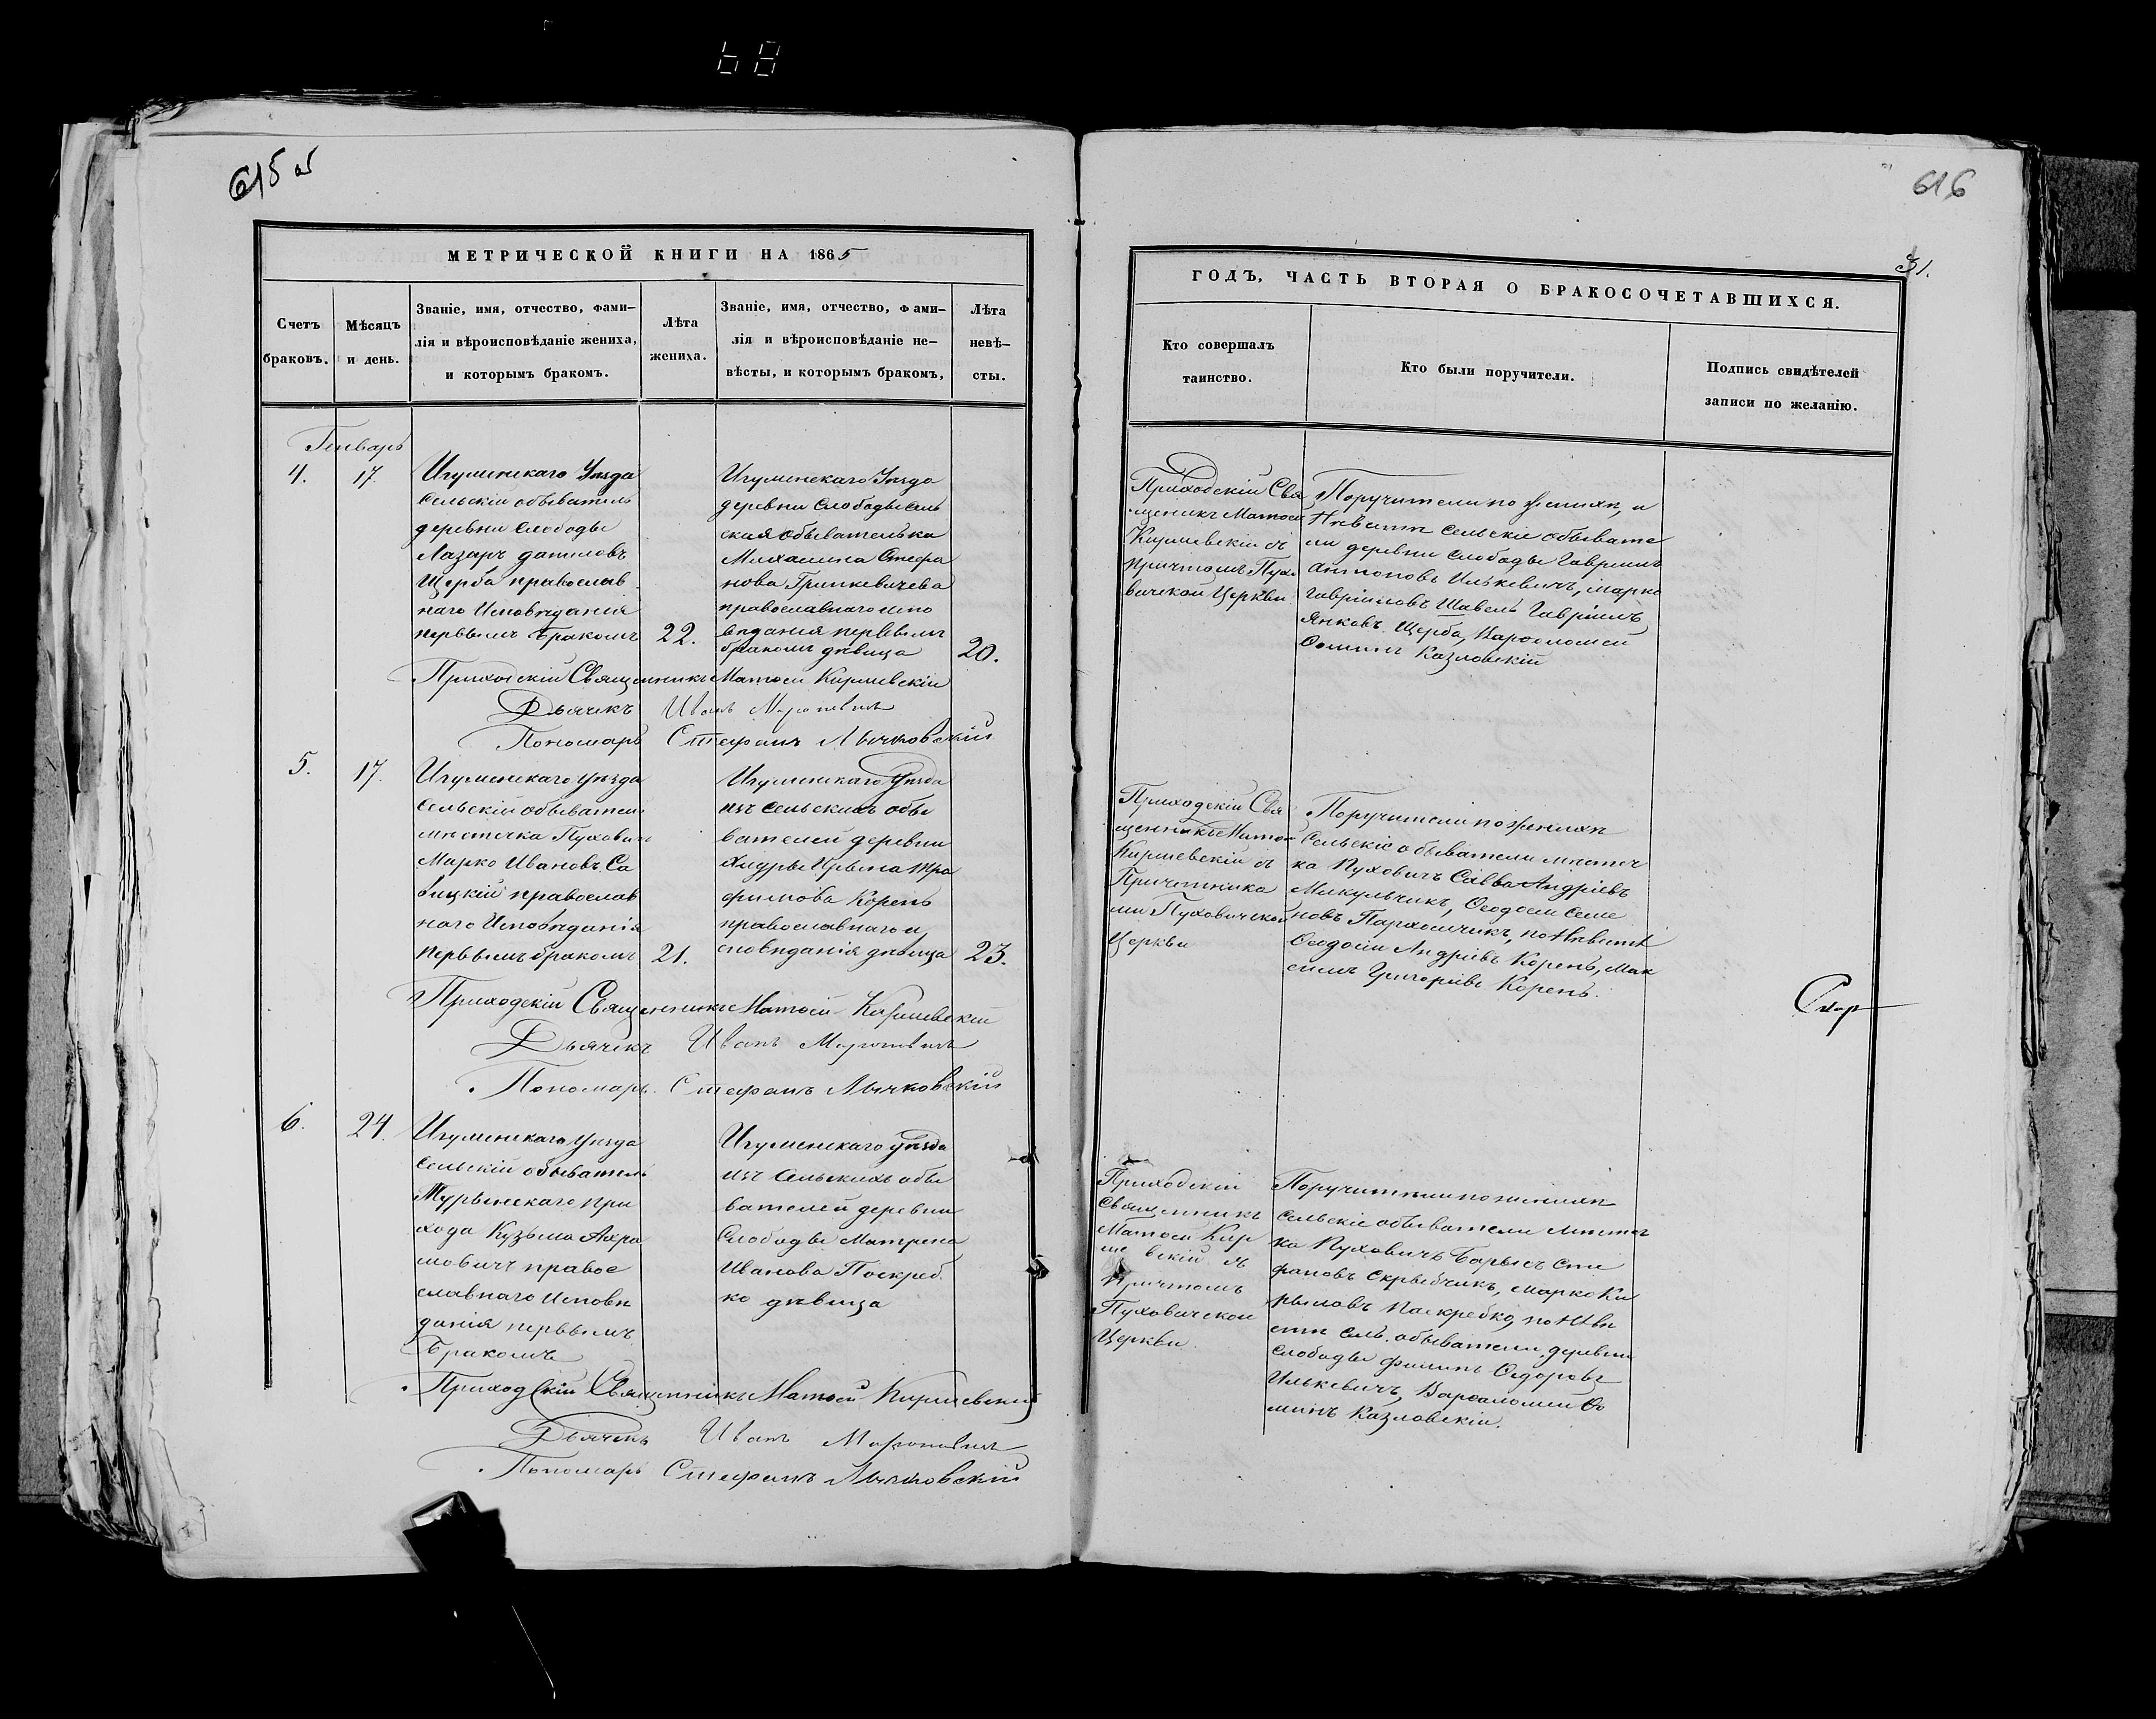 68
615 об
МЕТРИЧЕСКОЙ КНИГИ НА 1865
Счетъ
браковъ.
Мѣсяцъ
и день.
Званіе, имя, отчество, фами-
лія и вѣроисповѣданіе жениха,
и которымъ бракомъ.
Лѣта
жениха.
Званіе, имя, отчество, фами-
лія и вѣроисповѣданіе не-
вѣсты, и которымъ бракомъ,
Лѣта
невѣ-
сты.
Генварь
4.
17.
Игуменскаго Уѣзда
сельскій обыватель
деревни Слободы
Лазарь Даниловъ
Щерба православ
наго Исповѣданія
первымъ бракомъ
22.
Игуменскаго Уѣзда
деревни Слободы сель
ская обывателька
Михалина Стефа
нова Гринкевичева
православнаго испо
вѣданія первымъ
бракомъ дѣвица
20.
Приходскій Священникъ Матѳей Киршевскій
Дьячекъ Иванъ
Пономарь Стефанъ Лычковскій
5.
17.
Игуменскаго уѣзда
сельскій обыватель
мѣстечка Пуховичъ
Марко Ивановъ Са
вицкій православ
наго Исповѣданія
первымъ бракомъ
21.
Игуменскаго уѣзда
изъ сельскихъ обы
вателей деревни
Тра
фимова Корень
православнаго и
сповѣданія дѣвица
23.
Приходскій Священникъ Матѳей Киршевскій
Дьячекъ Иванъ
Пономарь Стефанъ Лычковскій
6.
24.
Игуменскаго уѣзда
сельскій обыватель
Турынскаго при
хода Кузьма Ахра
мовичъ право
славнаго Исповѣ
данія первымъ
Бракомъ
Игуменскаго уѣзда
изъ сельскихъ обы
вателей деревни
Слободы Матрена
Иванова Поскреб
ко дѣвица
Приходскій Священникъ Матѳей Киршевскій
Дьячекъ Иванъ
Пономарь Стефанъ Лычковскій
616
31.
ГОДЪ, ЧАСТЬ ВТОРАЯ О БРАКОСОЧЕТАВШИХСЯ.
Кто совершалъ
таинство.
Кто были поручители.
Подпись свидѣтелей
записи по желанію.
Приходскій Свя
щеникъ Матѳей
Киршевскій съ
причтомъ Пухо
вичской Церкви.
Поручители по женихѣ, и
Невѣстѣ сельскіе обывате
ли деревни Слободы Гавріилъ
Антоновъ Илькевичъ, Марко
Гавріиловъ Шавель Гавріилъ
Янковъ Щерба, Варѳоломей
Ѳоминъ Казловскій
Приходскій Свя
щенникъ Матѳей
Киршевскій съ
Причетника
ми Пуховичской
Церкви
Поручители по женихѣ
Сельскіе обыватели мѣстеч
ка Пуховичъ Савва Андріевъ
Микульчикъ, Ѳеодосій Семе
новъ Пархимчикъ, по Невѣстѣ
Ѳеодосій Андріевъ Корень, Мак
симъ Григоріевъ Корень.
Приходскій
Священникъ
Матѳей Кир
шевскій съ
Причтомъ
Пуховичской
Церкви.
Поручители по женихѣ
сельскіе обыватели мѣстеч
ка Пуховичъ Борысъ Сте
фановъ Скрыбчикъ, Марко Ки
рыловъ Паскребко, по Невѣ
стѣ сель. обыватели деревни
Слободы Филипъ Сидоровъ
Илькевичъ, Варѳоломей Ѳо
минъ Казловскій.